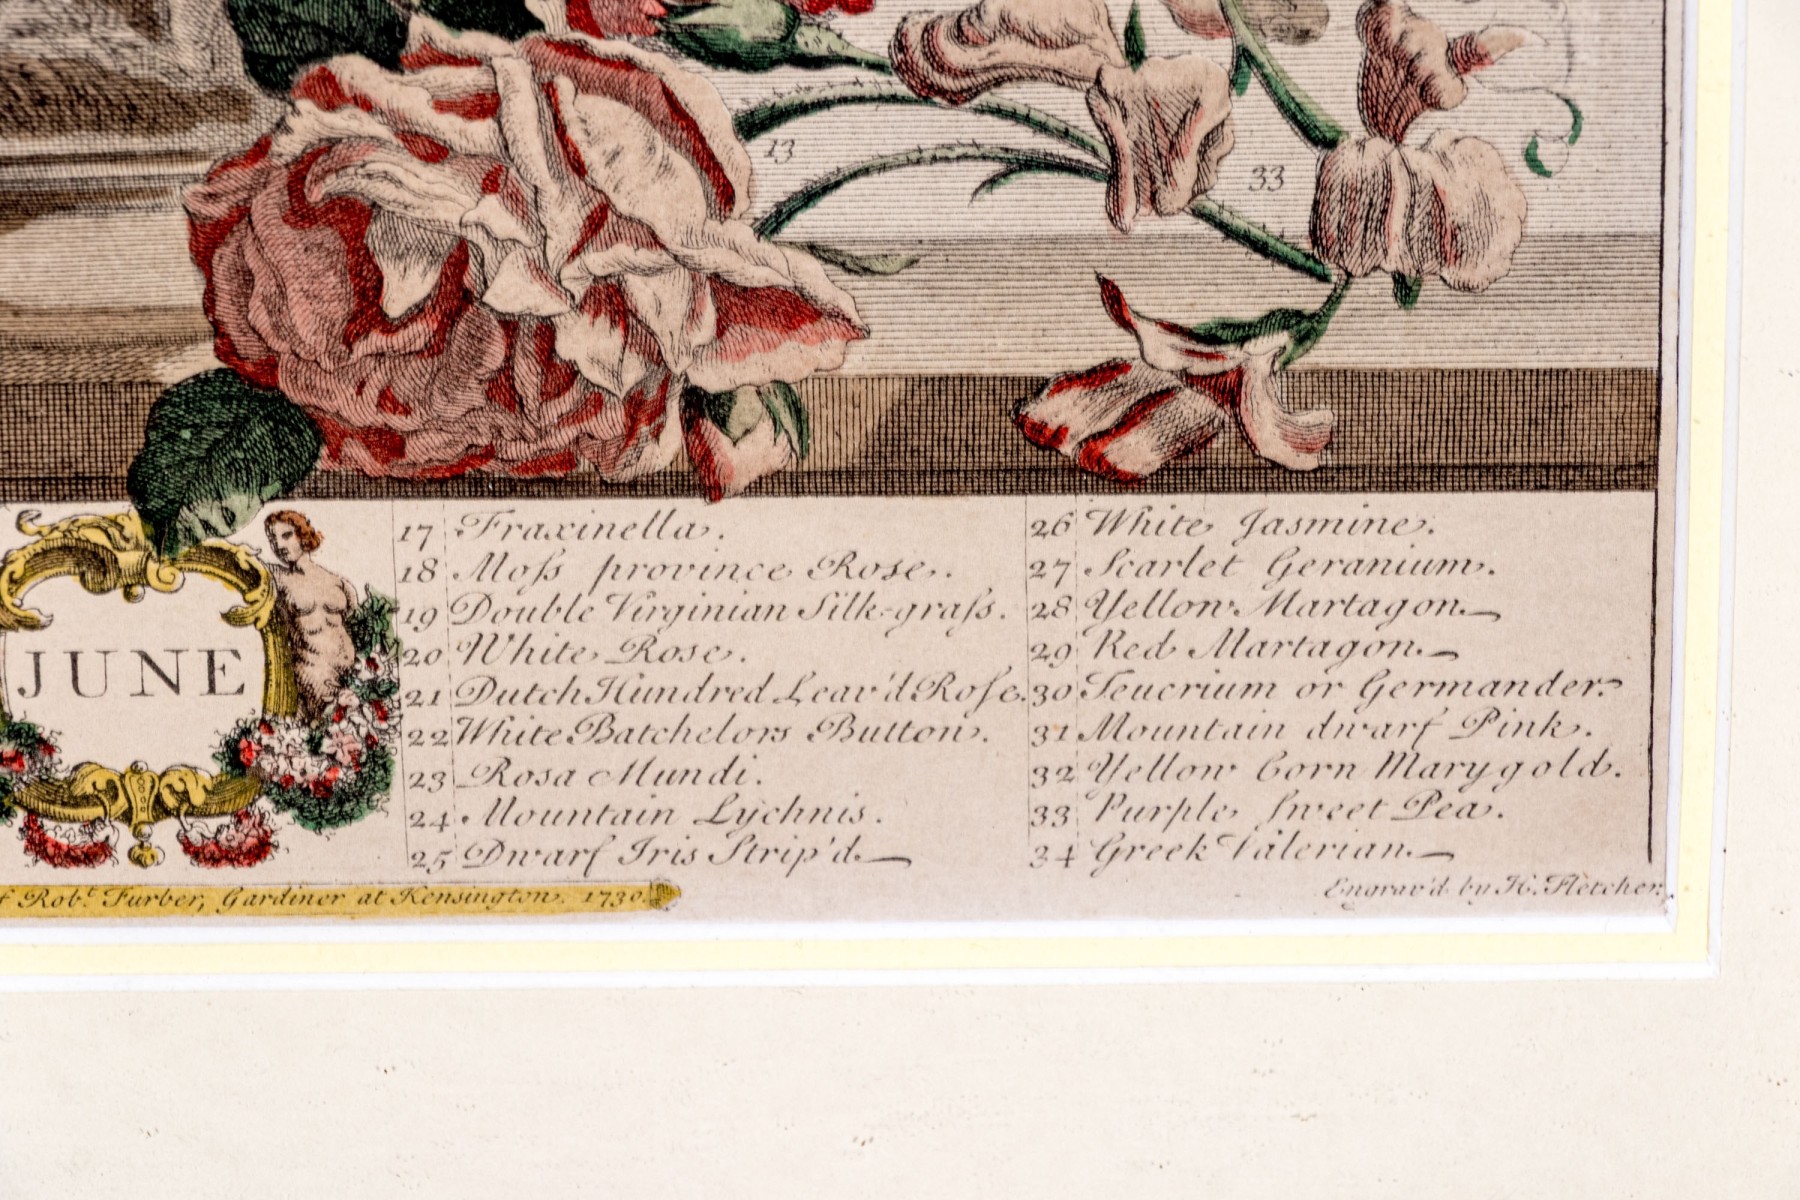 13
33
JUNE
17 Fraxinella.
18 Moſs province Rose.
19 Double Virginian Silk-graſs.
20 White Rose.
21 Dutch Hundred Leav'd Roſe.
22 White Batchelors Button.
23 Rosa Mundi.
24 Mountain Lychnis.
25 Dwarf Iris Strip'd.
26 White Jasmine.
27 Scarlet Geranium.
28 Yellow Martagon.
29 Red Martagon.
30 Teucrium or Germander.
31 Mountain dwarf Pink.
32 Yellow Corn Marygold.
33 Purple Sweet Pea.
34 Greek Valerian.
Robt. Furber, Gardiner at Kensington. 1730.
Engrav'd by H. Fletcher.